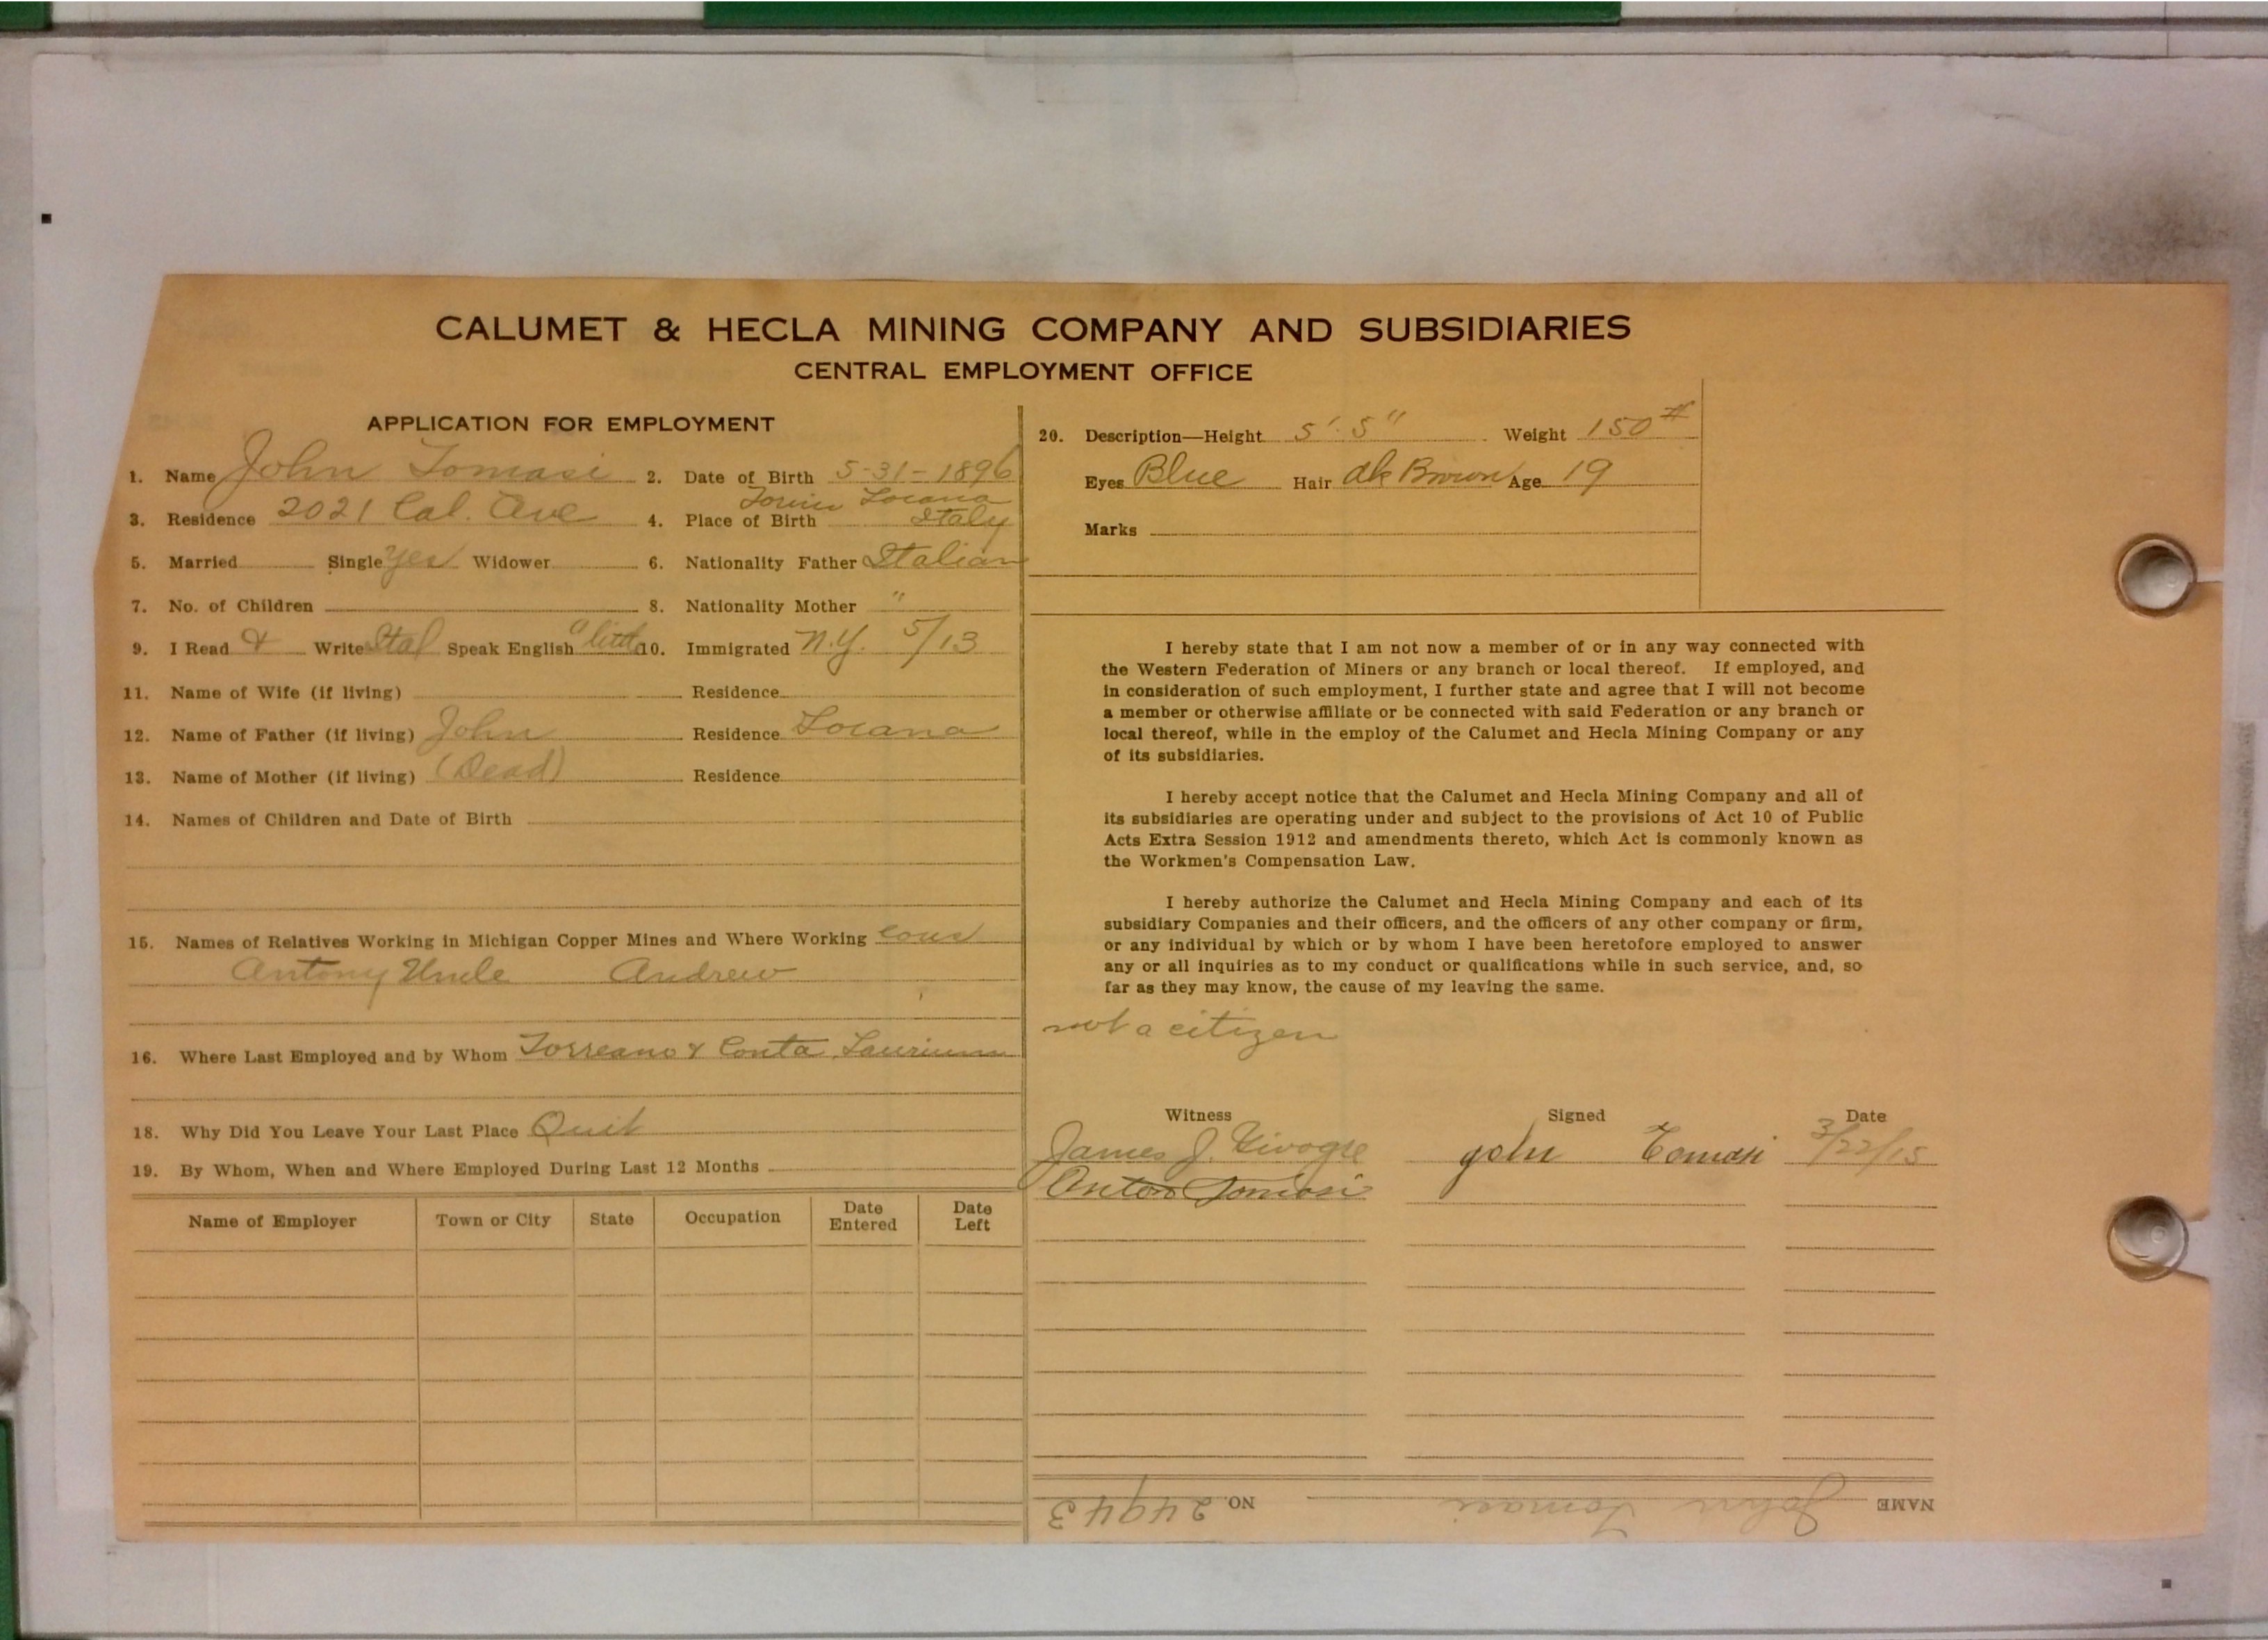 CALUMET & HECLA MINING COMPANY AND SUBSIDIARIES
CENTRAL EMPLOYMENT OFFICE
APPLICATION FOR EMPLOYMENT
1. Name John Tomasi 2. Date of Birth 5-31-1896
3. Residence 2021 Cal. Ave 4. Place of Birth Torino Locana Italy
5. Married Single yes Widower 6. Nationality Father Italian
7. No. of Children 8. Nationality Mother "
9. I Read & Write Ital Speak English a little 10. Immigrated N.Y. 5/13
11. Name of Wife (if living) Residence
12. Name of Father (if living) John Residence Locana
13. Name of Mother (if living) (Dead) Residence
14. Names of Children and Date of Birth
15. Names of Relatives Working in Michigan Copper Mines and Where Working Cous
Antony Uncle Andrew
16. Where Last Employed and by Whom Torreano & Conta Laurium
18. Why Did You Leave Your Last Place Quit
19. By Whom, When and Where Employed During Last 12 Months
Name of Employer Town or City State Occupation Date Entered Date Left
20. Description—Height 5' 5" Weight 150 #
Eyes Blue Hair dk Brown Age 19
Marks
I hereby state that I am not now a member of or in any way connected with
the Western Federation of Miners or any branch or local thereof. If employed, and
in consideration of such employment, I further state and agree that I will not become
a member or otherwise affiliate or be connected with said Federation or any branch or
local thereof, while in the employ of the Calumet and Hecla Mining Company or any
of its subsidiaries.
I hereby accept notice that the Calumet and Hecla Mining Company and all of
its subsidiaries are operating under and subject to the provisions of Act 10 of Public
Acts Extra Session 1912 and amendments thereto, which Act is commonly known as
the Workmen's Compensation Law.
I hereby authorize the Calumet and Hecla Mining Company and each of its
subsidiary Companies and their officers, and the officers of any other company or firm,
or any individual by which or by whom I have been heretofore employed to answer
any or all inquiries as to my conduct or qualifications while in such service, and, so
far as they may know, the cause of my leaving the same.
not a citizen
Witness Signed Date
James J. John Tomasi 3/22/15
Anton Tomasi
NAME John Tomasi NO. 24943